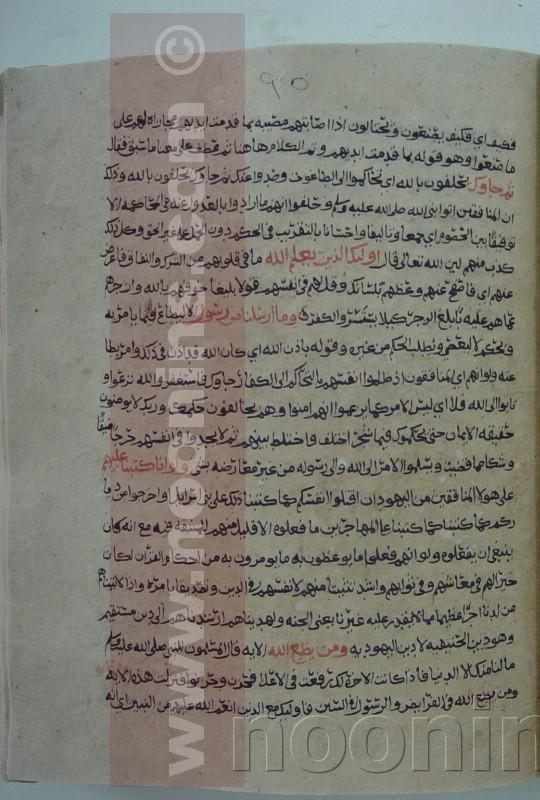 ٩٥
فكيف اي فكيف يصنعون ويحتالون اذا اصابتهم مصيبة بما قدمت ايديهم مجازاة لهم على
ما صنعوا وهو قوله بما قدمت ايديهم وتم الكلام هاهنا ثم عطف على معنى ما سبق فقال
ثم جاوك يحلفون بالله اي تحاكموا الى الطاغوت وصدوا عنك ثم جاوك يحلفون بالله وذلك
ان المنافقين اتوا نبي الله صلى الله عليه وسلم وحلفوا انهم ما ارادوا بالعدول عنه في المحاكمة الا
توفيقا بين الخصوم اي جمعا وتاليفا واحسانا بالتقريب في الحكم دون الحمل على مر الحق وكل ذلك
كذب منهم لان الله تعالى قال اوليك الذين يعلم الله ما في قلوبهم من الشرك والنفاق فاعرض
عنهم اي فاصفح عنهم وعظهم بلسانك وقل لهم في انفسهم قولا بليغا خوفهم بالله وازجرهم
عما هم عليه بابلغ الزجر كيلا يستسروا الكفر وما ارسلنا من رسول الا ليطاع فيما يامر به
ويحكم لا ليعصى ويطلب الحكم من غيره وقوله باذن الله اي كان الله قد اذن في ذلك وامر بطا
عته ولو انهم اي المنافقون اذ ظلموا انفسهم بالتحاكم الى الكفار جاوك فاستغفروا الله نزعوا و
تابوا الى الله فلا اي ليس الامر كما يزعموا انهم امنوا وهم يخالفون حكمك وربك لا يومنون
حقيقة الايمان حتى يحكموك فيما شجر اختلف واختلط بينهم ثم لا يجدوا في انفسهم حرجا ضيقا
وشكا مما قضيت ويسلموا الامر الى الله والى رسوله من غير معارضة بشي ولو انا كتبنا عليهم
على هولا المنافقين من اليهود ان اقتلوا انفسكم كما كتبنا ذلك على بني اسرايل واخرجوا من ديا
ركم كما كتبنا على المهاجرين ما فعلوه الا قليل منهم للمشقة فيه مع انه كان
ينبغي ان يفعلوه ولو انهم فعلوا ما يوعظون به ما يومرون به من احكام القران لكان
خيرا لهم في معاشهم وفي ثوابهم واشد تثبيتا منهم لانفسهم في الدين وتصديقا بامر الله واذا لاتيناهم
من لدنا اجرا عظيما مما لا يقدر عليه غيرنا يعني الجنة ولهديناهم ارشدناهم الى دين مستقيم
وهو دين الحنيفية لا دين اليهودية ومن يطع الله الاية قال المسلمون للنبي صلى الله عليه وسلم
ما لنا منك الا الدنيا فاذا كانت الاخرة رفعت في الاعلا فحزن وحزنوا فنزلت هذه الاية
ومن يطع الله في الفرايض والرسول في السنن فاوليك مع الذين انعم الله عليهم من النبيين اي انه
www.noonine.com ©
noonin